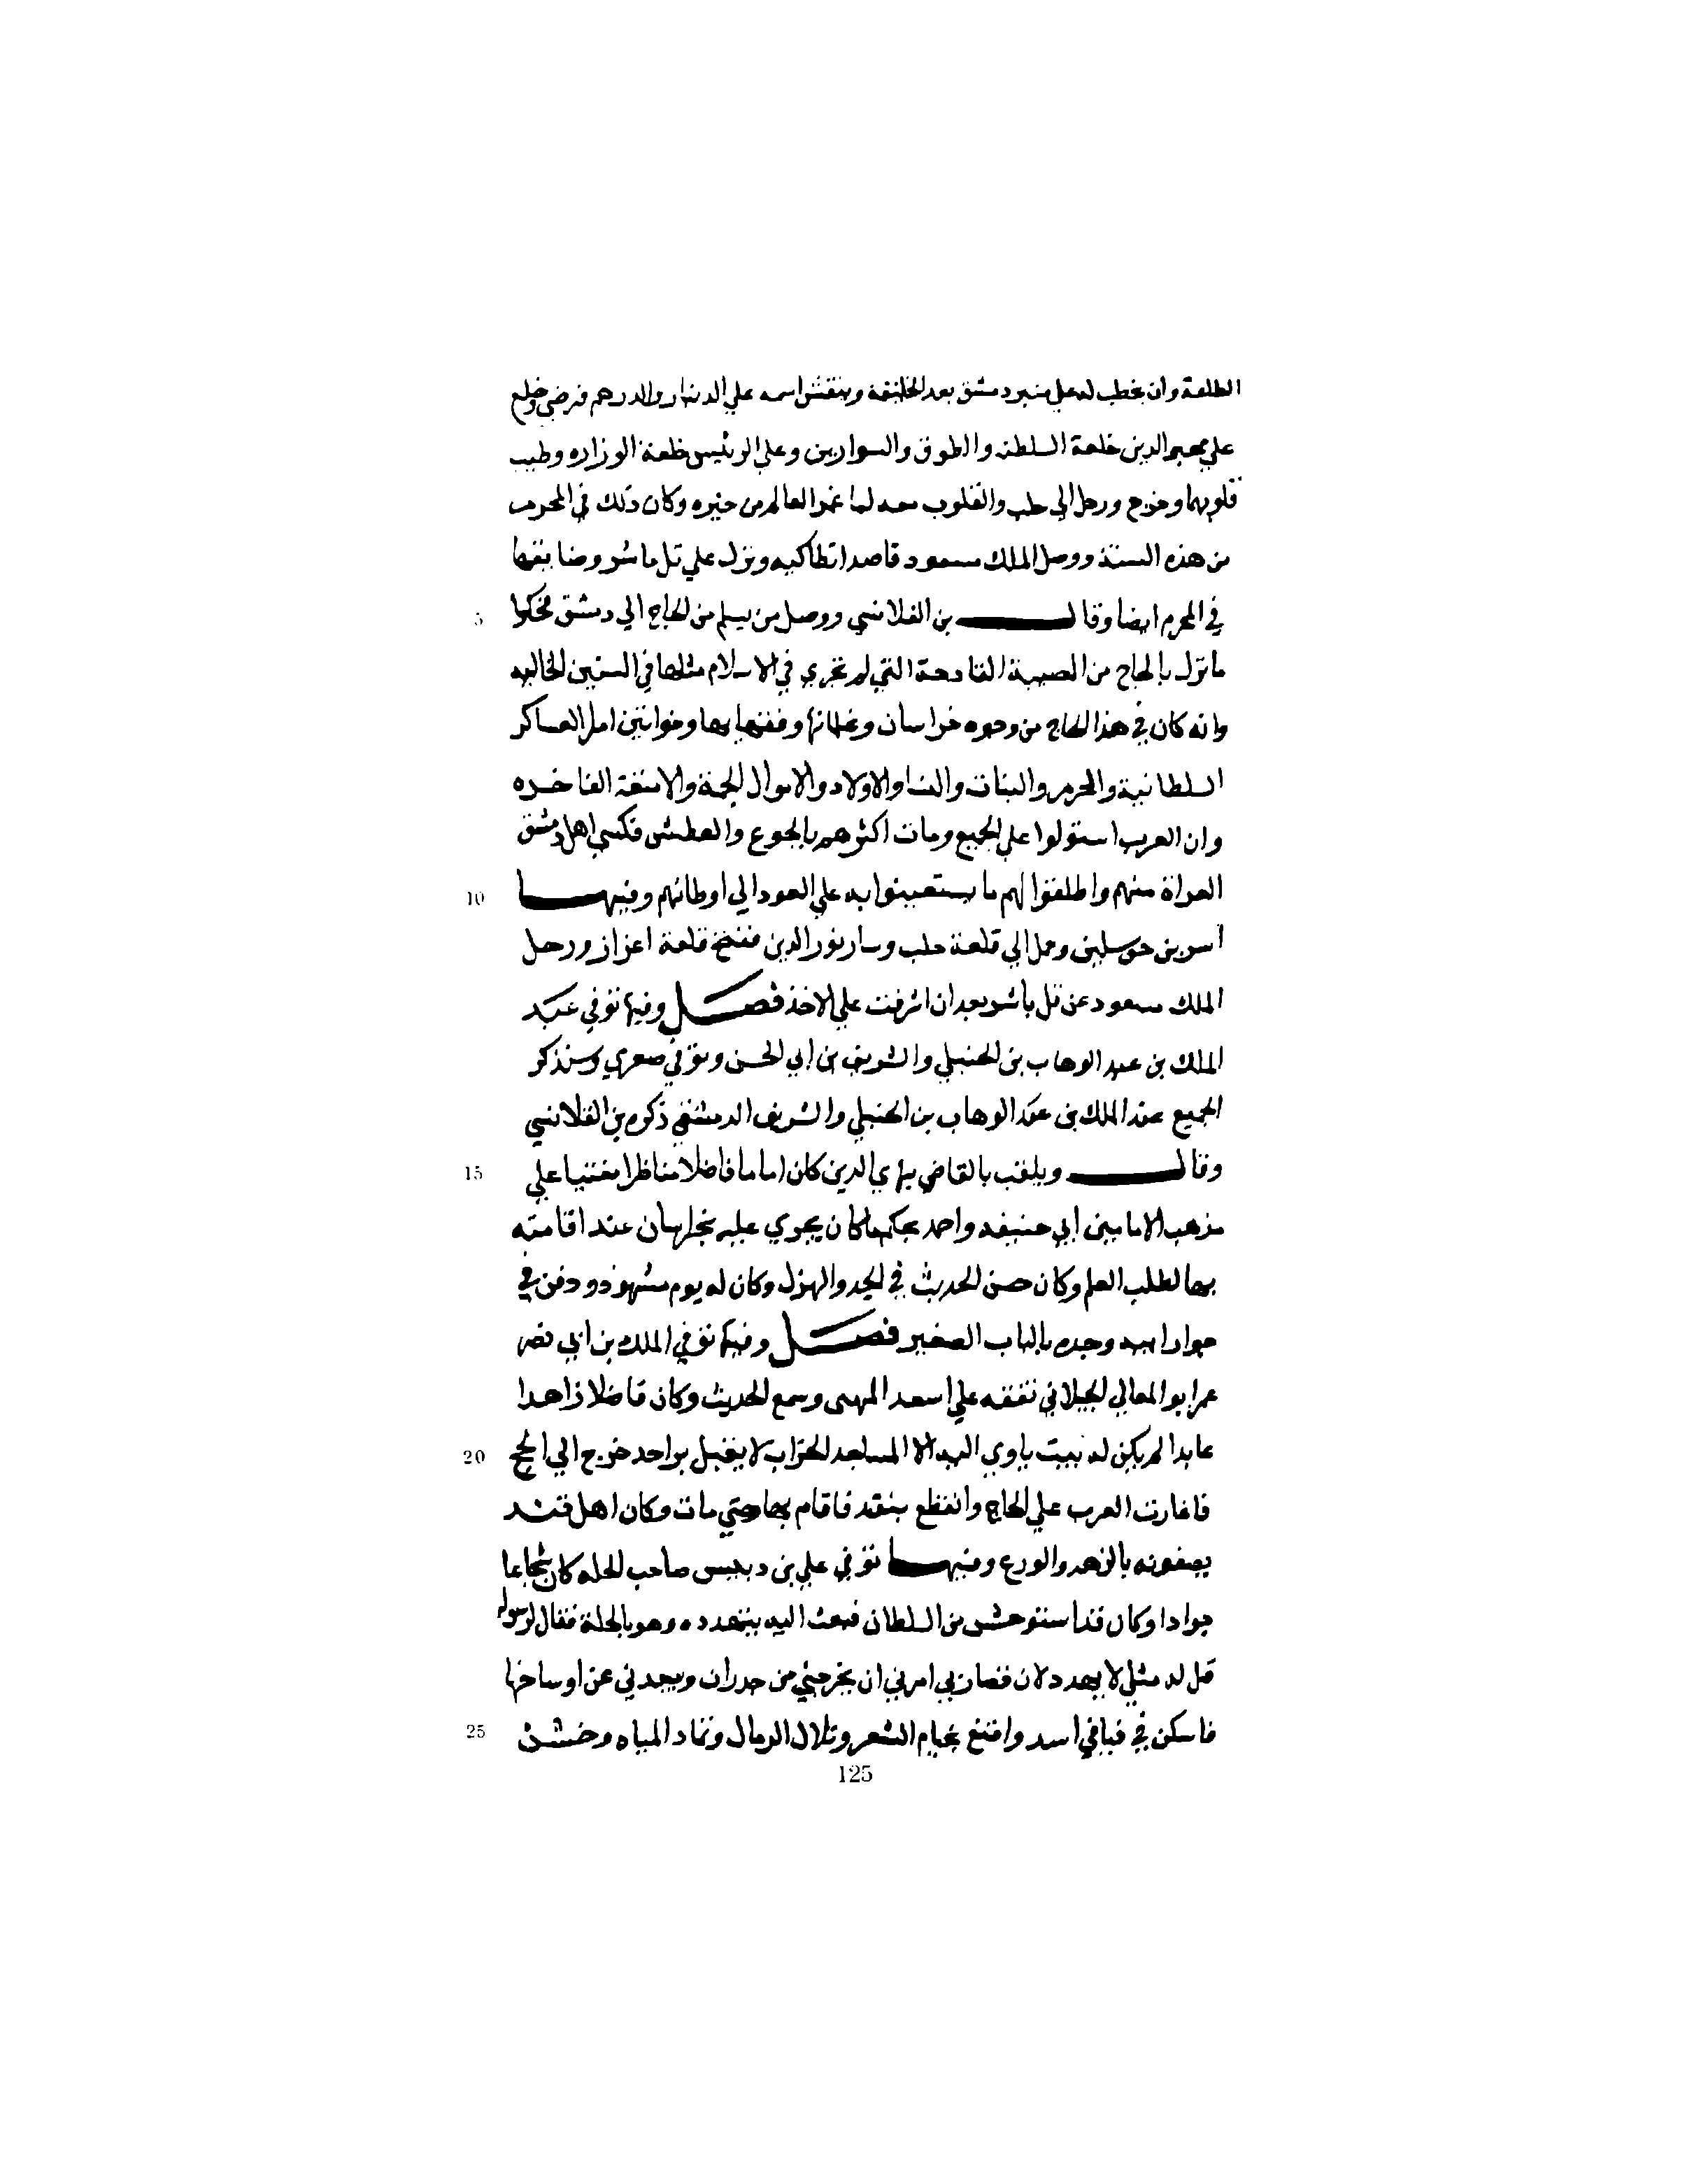 الطلعة وان يخطب له على منبر دمشق بعد الخليفة وينقش اسمه علي الدينار والدرهم فرضي وخلع
علي مجير الدين خلعة السلطنة والطوق والسوارين وعلي الرئيس خلعة الوزاره وطيب
قلوبهما وخرج ورحل الي حلب والقلوب معه لما غمر العالم من خيره وكان ذلك في المحرم
من هذه السنة ووصل الملك مسعود قاصدا انطاكيه ونزل علي تل باشر وضايقها
5 في المحرم ايضا وقال بن القلانسي ووصل من يسلم من الحاج الي دمشق فحكوا
ما نزل بالحاج من المصيبة الفادحة التي لم تجري في الاسلام مثلها في السنين الخاليه
وانه كان في هذا الحاج من وجوه خراسان وعلمائها وفقهايها وخواتين امل العساكر
السلطانية والحرم والبنات والنسا والاولاد والاموال الجمة والامتعة الفاخره
وان العرب استولوا علي الجميع ومات اكثرهم بالجوع والعطش فكسي اهل دمشق
10 العراة منهم واطلقوا لهم ما يستعينوا به علي العود الي اوطانهم وفيها
اسر بن جوسلين وحمل الي قلعة حلب وسار نور الدين ففتح قلعة اعزاز ورحل
الملك مسعود عن تل باشر بعد ان اشرفت علي الاخذ فصل وفيها توفي عبد
الملك بن عبد الوهاب بن الحنبلي والشريف بن ابي الحسن وتوفي صعري وسنذكر
الجميع عبد الملك بن عبد الوهاب بن الحنبلي والشريف الدمشقي ذكره بن القلانسي
15 وقال ويلقب بالقاضي بهاي الدين كان اماما فاضلا مناظرا مفتيا علي
مذهب الامامين ابي حنيفه واحمد بحكم ما كان يجري عليه بخراسان عند اقامته
بها لطلب العلم وكان حسن الحديث في الجد والهزل وكان له يوم مشهود ودفن في
جوار ابيه وجده بالباب الصغير فصل وفيها توفي الملك بن ابي نصر
عمر ابو المعالي الجيلاني تفقه علي اسعد المهنى وسمع الحديث وكان فاضلا زاهدا
20 عابدا لم يكن له بيت ياوي اليه الا المساجد الخراب لا يقبل بر احد خرج الي الحج
فاغارت العرب علي الحاج وانقطع بفيد فاقام بها حتي مات وكان اهل فيد
يصفونه بالزهد والورع وفيها توفي علي بن دبيس صاحب الحله كان شجاعا
جوادا وكان قد استوحش من السلطان فبعث اليه يتهدده وهو بالحلة فقال لرسوله
قل له مثلي لا يهدد لان قصاربي امري ان يخرجني من جدران ويبعدني عن اوساخها
25 فاسكن في فيافي اسد واقنع بخيام الشعر وتلال الرمال وثماد المياه وخشن
125